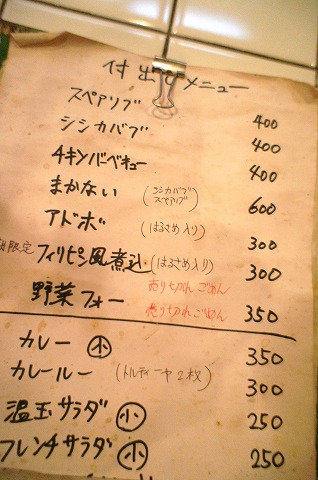 付出しメニュー
スペアリブ 400
シシカバブ 400
チキンバーベキュー 400
まかない (シシカバブ スペアリブ) 600
アドボ (はるさめ入り) 300
限定 フィリピン風煮込 (はるさめ入り) 300
売り切れごめん
野菜フォー 売り切れごめん 350
カレー 小 350
カレールー (トルティーヤ2枚) 300
温玉サラダ 小 250
フレンチサラダ 小 250